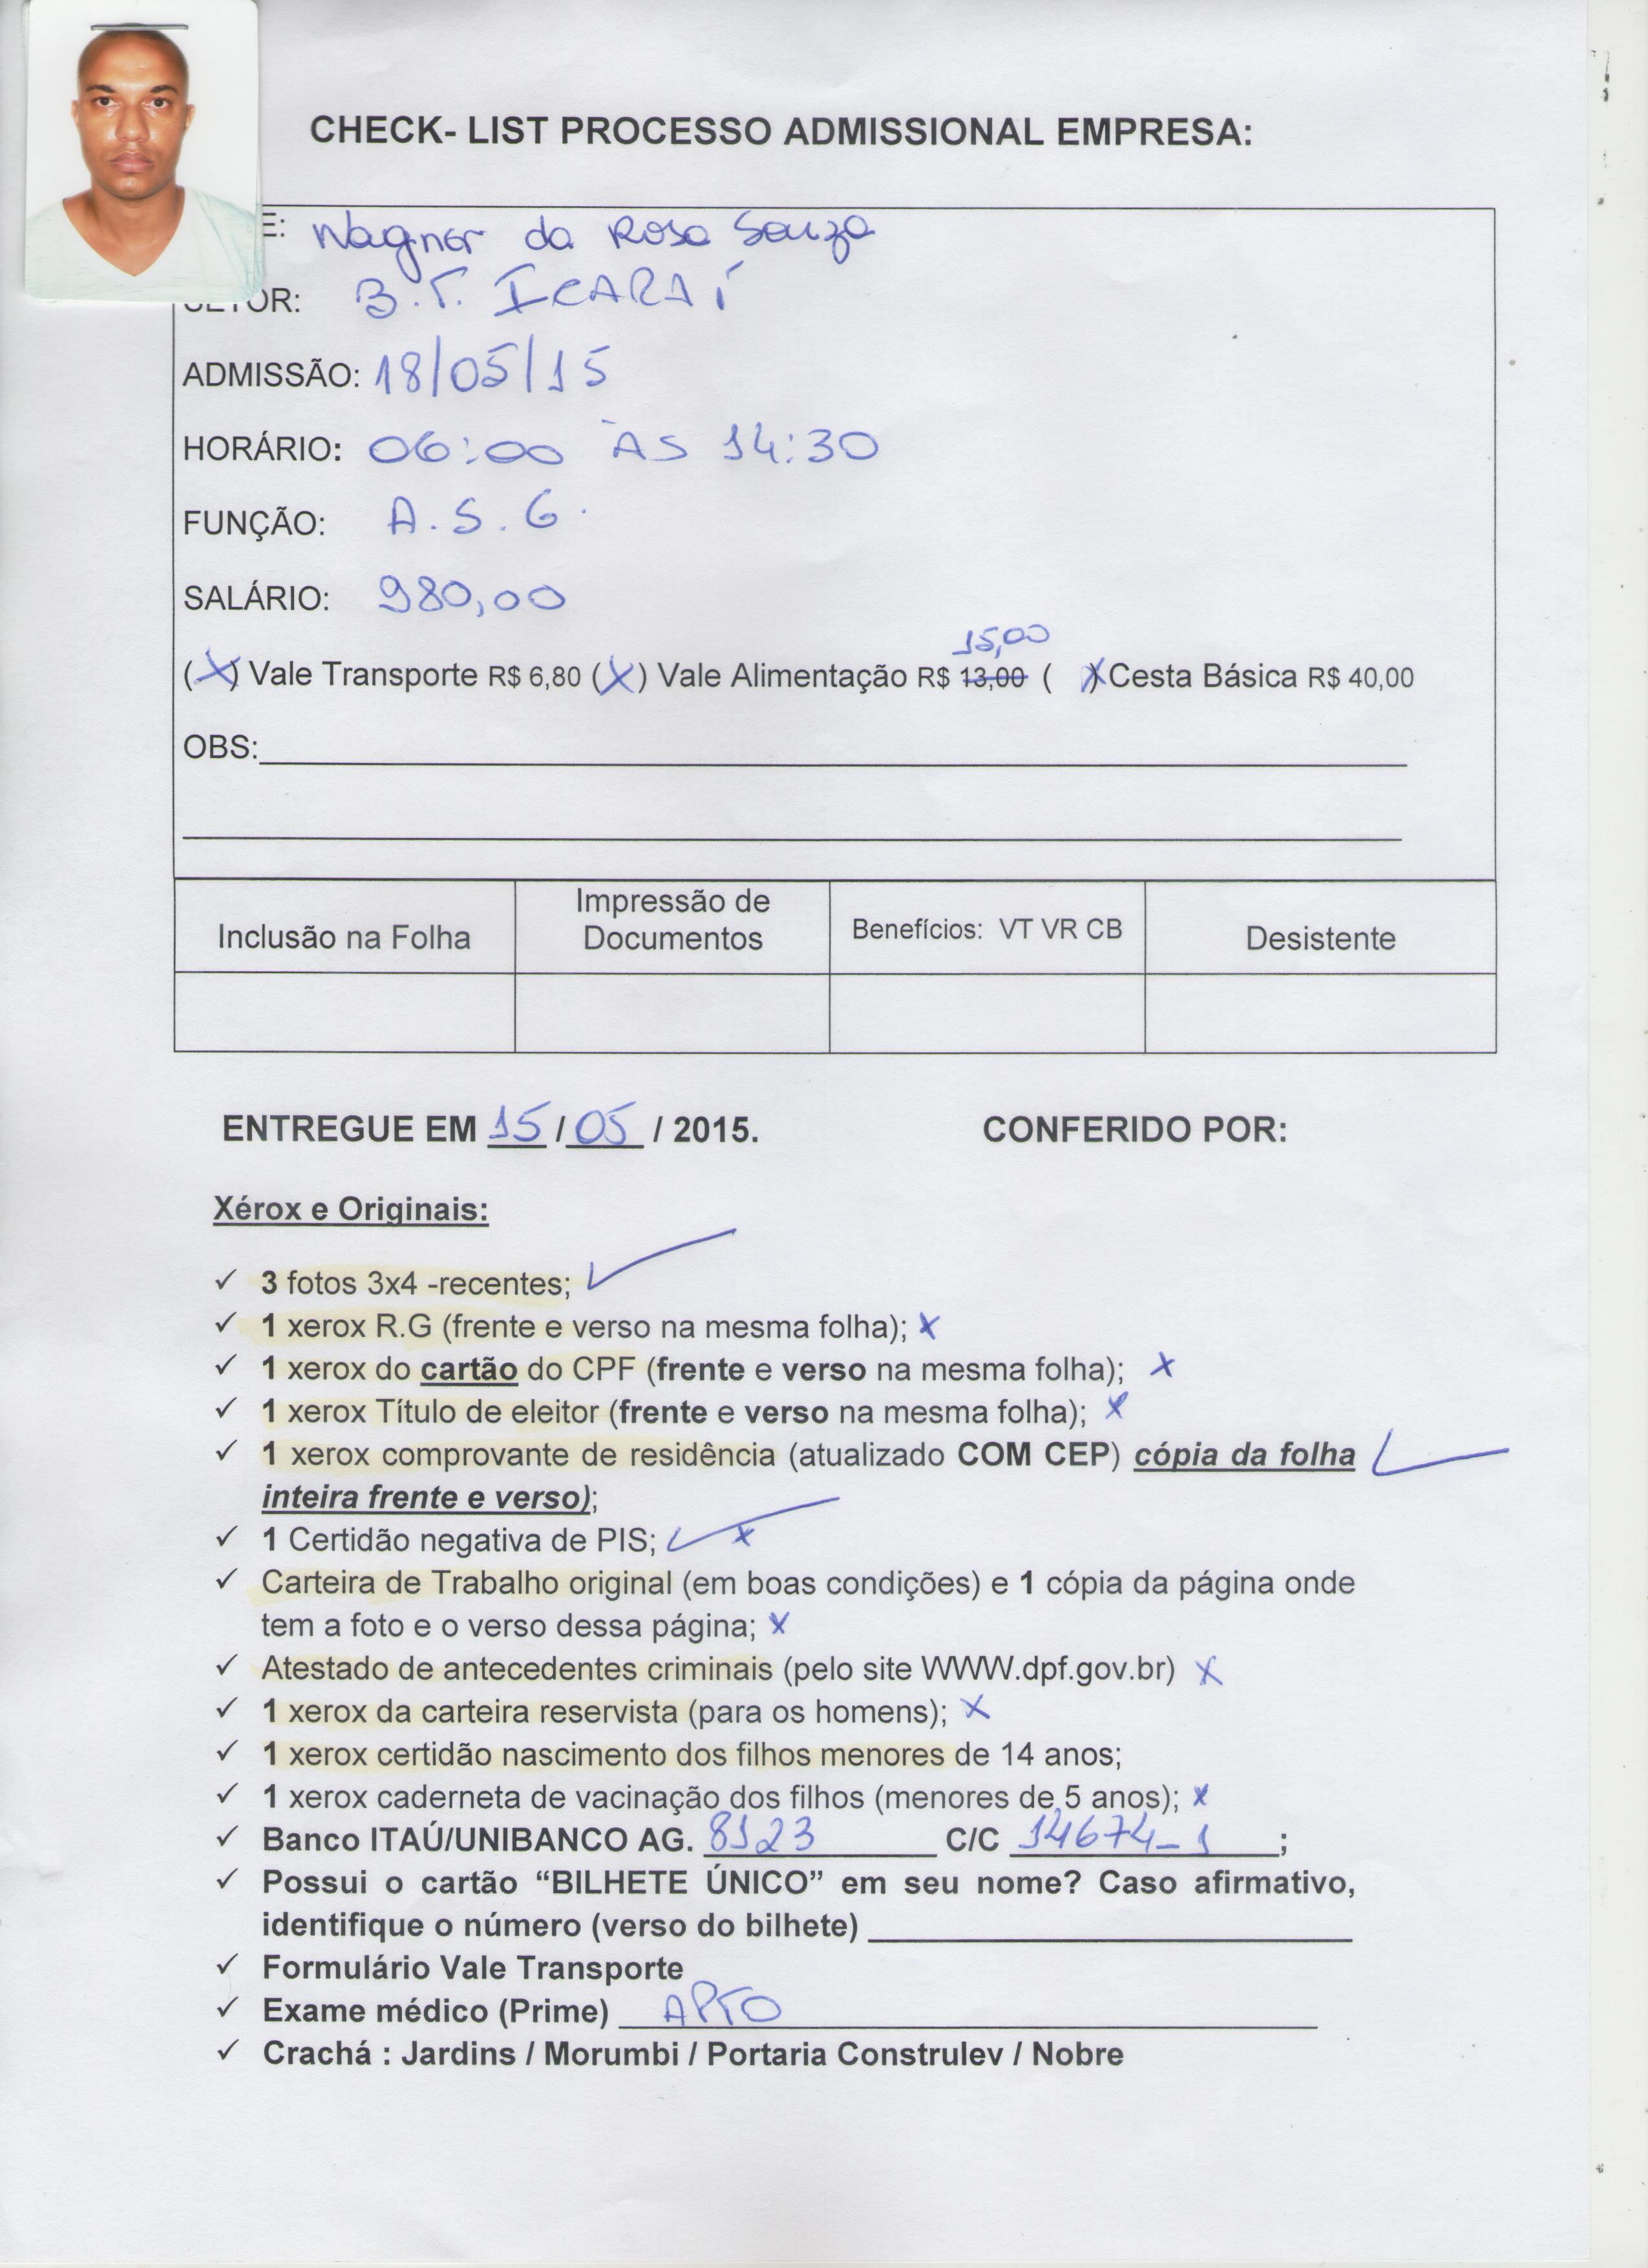 CHECK- LIST PROCESSO ADMISSIONAL EMPRESA:
E: Wagner da Rosa Souza
SETOR: B.T. ICARAÍ
ADMISSÃO: 18/05/15
HORÁRIO: 06:00 ÀS 14:30
FUNÇÃO: A.S.G.
SALÁRIO: 980,00
15,00
(X) Vale Transporte R$ 6,80 (X) Vale Alimentação R$ 13,00 ( X) Cesta Básica R$ 40,00
OBS:
Inclusão na Folha Impressão de Documentos Benefícios: VT VR CB Desistente
ENTREGUE EM 15 / 05 / 2015. CONFERIDO POR:
Xérox e Originais:
✓ 3 fotos 3x4 -recentes; ✓
✓ 1 xerox R.G (frente e verso na mesma folha); x
✓ 1 xerox do cartão do CPF (frente e verso na mesma folha); x
✓ 1 xerox Título de eleitor (frente e verso na mesma folha); x
✓ 1 xerox comprovante de residência (atualizado COM CEP) cópia da folha ✓
inteira frente e verso);
✓ 1 Certidão negativa de PIS; ✓ x
✓ Carteira de Trabalho original (em boas condições) e 1 cópia da página onde
tem a foto e o verso dessa página; x
✓ Atestado de antecedentes criminais (pelo site WWW.dpf.gov.br) x
✓ 1 xerox da carteira reservista (para os homens); x
✓ 1 xerox certidão nascimento dos filhos menores de 14 anos;
✓ 1 xerox caderneta de vacinação dos filhos (menores de 5 anos); x
✓ Banco ITAÚ/UNIBANCO AG. 8123 C/C 14674-1 ;
✓ Possui o cartão “BILHETE ÚNICO” em seu nome? Caso afirmativo,
identifique o número (verso do bilhete)
✓ Formulário Vale Transporte
✓ Exame médico (Prime) APTO
✓ Crachá : Jardins / Morumbi / Portaria Construlev / Nobre